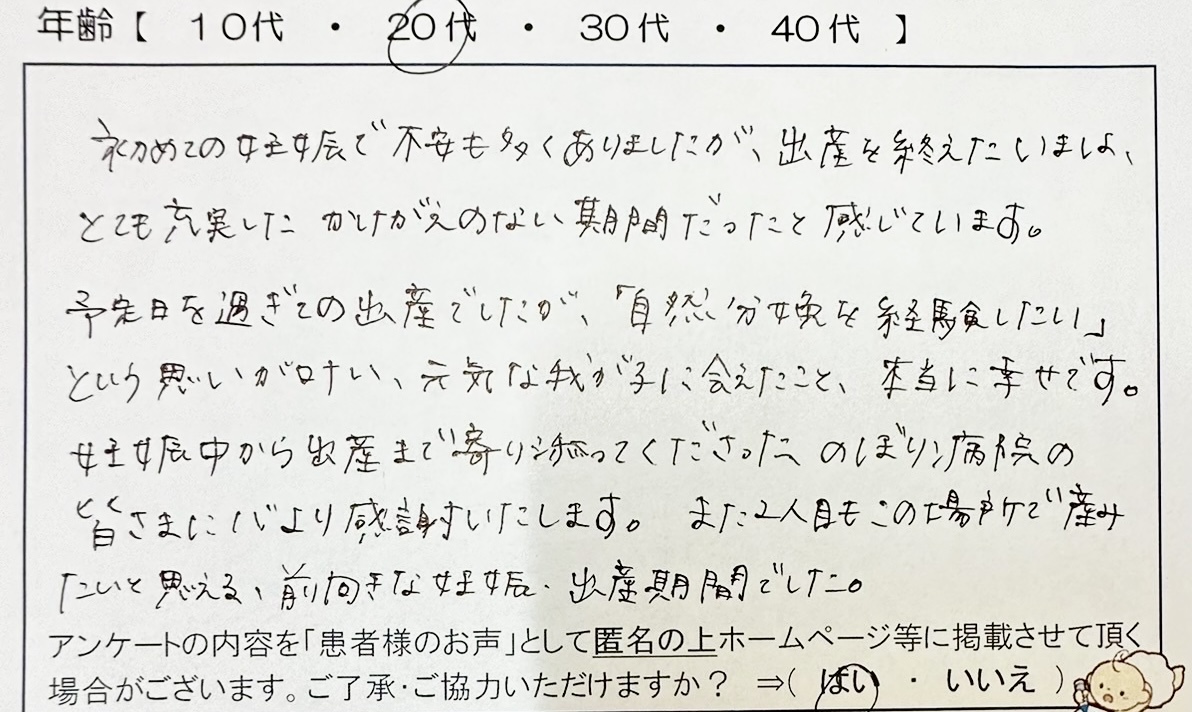 年齢【 10代 ・ 20代 ・ 30代 ・ 40代 】
初めての妊娠で不安も多くありましたが、出産を終えたいま、
とても充実した かけがえのない期間だったと感じています。
予定日を過ぎての出産でしたが、「自然分娩を経験したい」
という思いが叶い、元気な我が子に会えたこと、本当に幸せです。
妊娠中から出産まで寄り添ってくださった のぼり病院の
皆さまに心より感謝いたします。 また2人目もこの場所で産み
たいと思える、前向きな妊娠・出産期間でした。
アンケートの内容を「患者様のお声」として匿名の上ホームページ等に掲載させて頂く
場合がございます。ご了承・ご協力いただけますか? ⇒( はい ・ いいえ )